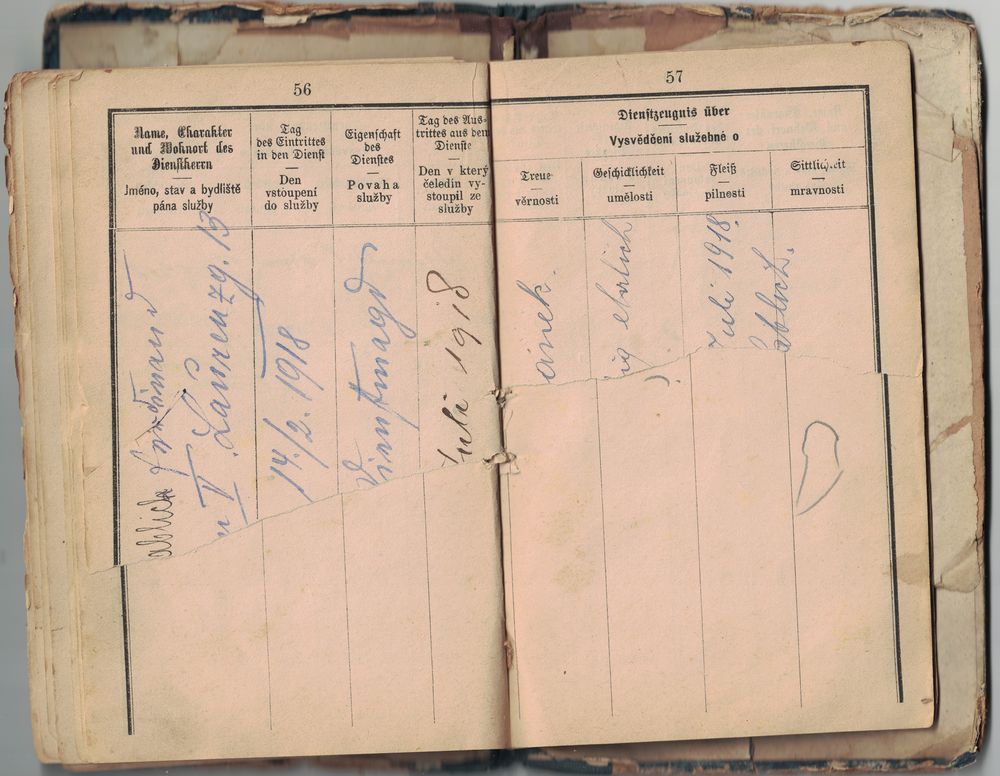 56
Name, Charakter
und Wohnort des
Dienstherrn
Jméno, stav a bydliště
pána služby
Tag
des Eintrittes
in den Dienst
Den
vstoupení
do služby
Eigenschaft
des
Dienstes
Povaha
služby
Tag des Aus-
trittes aus dem
Dienste
Den v který
čeledín vy-
stoupil ze
služby
Ferdinand
V. Laurenzg. 13
14./2. 1918
Dienstmagd
Juli 1918
57
Dienstzeugnis über
Vysvědčení služebné o
Treue
věrnosti
Geschicklichkeit
umělosti
Fleiß
pilnosti
Sittlichkeit
mravnosti
ehrlich
Juli 1918.